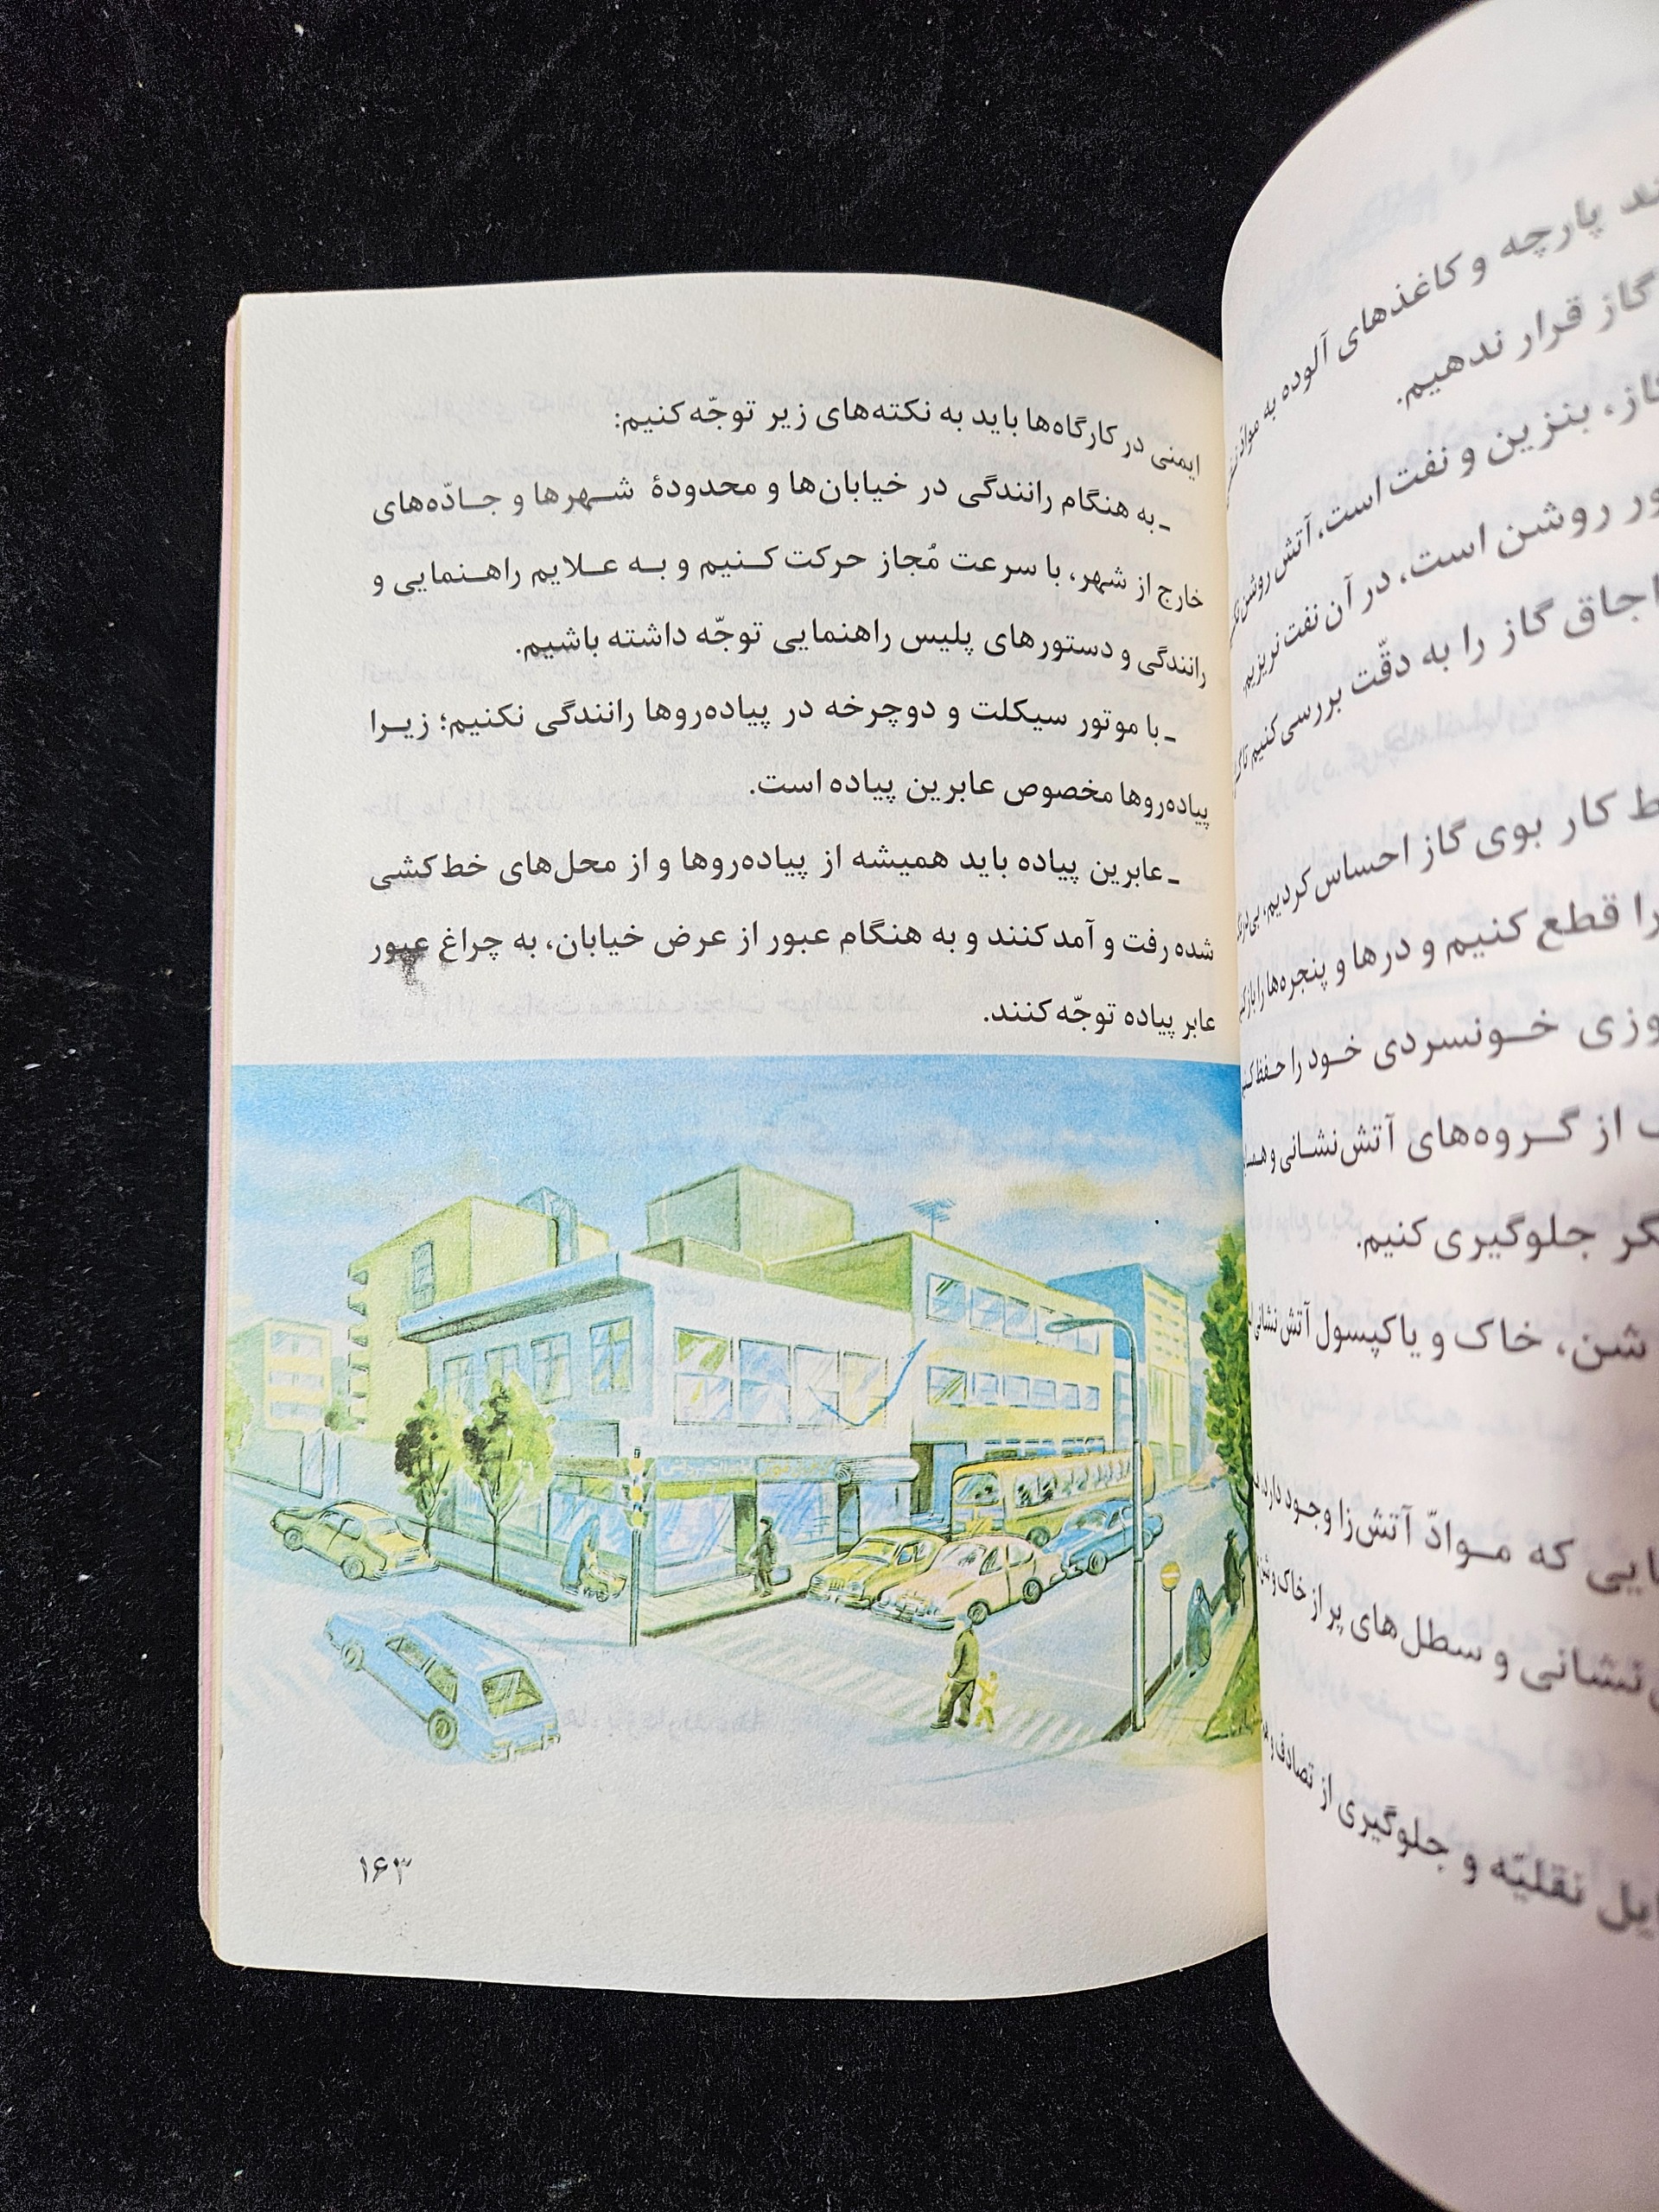 ایمنی در کارگاه‌ها باید به نکته‌های زیر توجّه کنیم:
ـ به هنگام رانندگی در خیابان‌ها و محدودهٔ شـهرها و جـادّه‌های
خارج از شهر، با سرعت مُجاز حرکت کـنیم و بـه عـلایم راهـنمایی و
رانندگی و دستورهای پلیس راهنمایی توجّه داشته باشیم.
ـ با موتور سیکلت و دوچرخه در پیاده‌روها رانندگی نکنیم؛ زیـرا
پیاده‌روها مخصوص عابرین پیاده است.
ـ عابرین پیاده باید همیشه از پیاده‌روها و از محل‌های خط‌کشی
شده رفت و آمد کنند و به هنگام عبور از عرض خیابان، به چراغ عبور
عابر پیاده توجّه کنند.
۱۶۳
پارچه و کاغذهای آلوده به موادّ
گاز قرار ندهیم.
بنزین و نفت است، آتش روشن
روشن است، در آن نفت نریزیم.
اجاق گاز را به دقّت بررسی کنیم تا
کار بوی گاز احساس کردیم،
را قطع کنیم و درها و پنجره‌ها را باز
خـونسردی خـود را حـفظ
از گـروه‌های آتش‌نشـانی و
جلوگیری کنیم.
شن، خاک و یا کپسول آتش‌نشانی
که مـوادّ آتش‌زا وجـود دارد،
و سطل‌های پر از خاک و
نقلیّه و جلوگیری از تصادف و